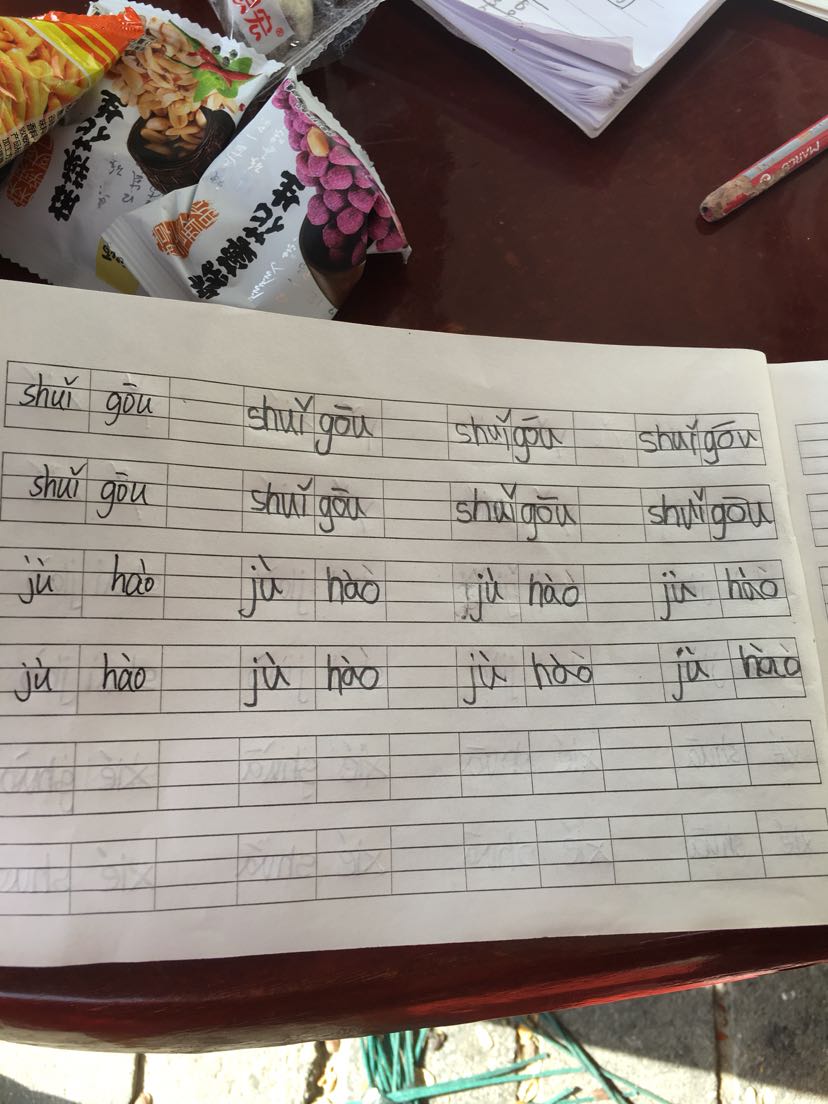 宏®
MARCO
shuǐ gōu shuǐ gōu shuǐ gōu shuǐ gōu
shuǐ gōu shuǐ gōu shuǐ gōu shuǐ gōu
jù hào jù hào jù hào jù hào
jù hào jù hào jù hào jù hào